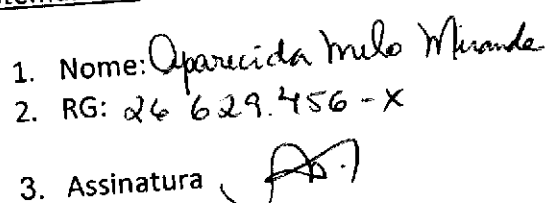 1. Nome: Aparecida Melo Miranda
2. RG: 26 629.456-X
3. Assinatura